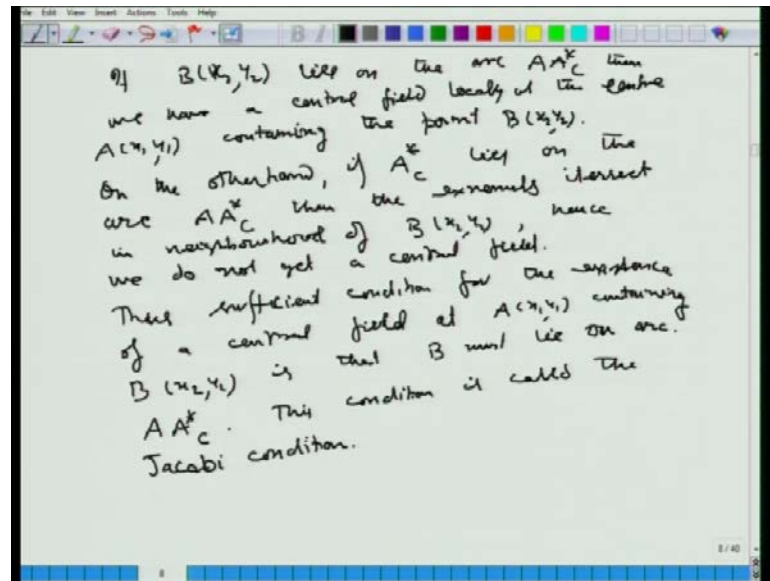 File Edit View Insert Actions Tools Help
If B(x₂,y₂) lies on the arc AA*_C then
we have a central field locally at the centre
A(x₁,y₁) containing the point B(x₂,y₂).
On the otherhand, if A*_C lies on the
arc AA*_C then the extremals itersect
in neighbourhood of B(x₂,y₂), hence
we do not get a central field.
Thus sufficient condition for the existance
of a central field at A(x₁,y₁) containing
B(x₂,y₂) is that B must lie on arc.
AA*_C. This condition is called the
Jacabi condition.
8/40
8